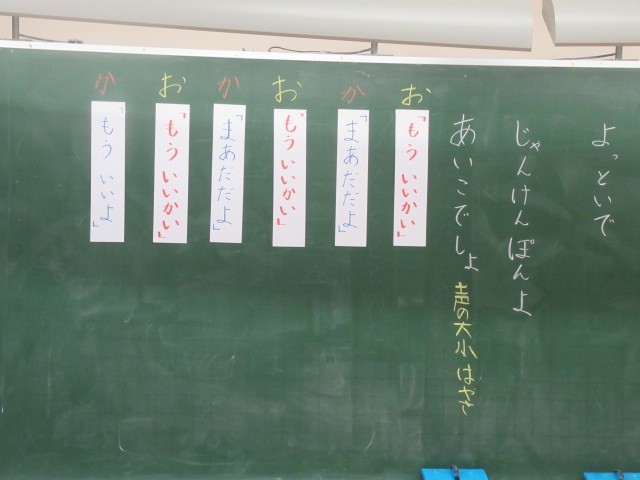 よっといで
じゃんけんぽんよ
あいこでしょ 声の大小 はやさ
お
「もういいかい」
か
「まあだだよ」
お
「もういいかい」
か
「まあだだよ」
お
「もういいかい」
か
「もういいよ」